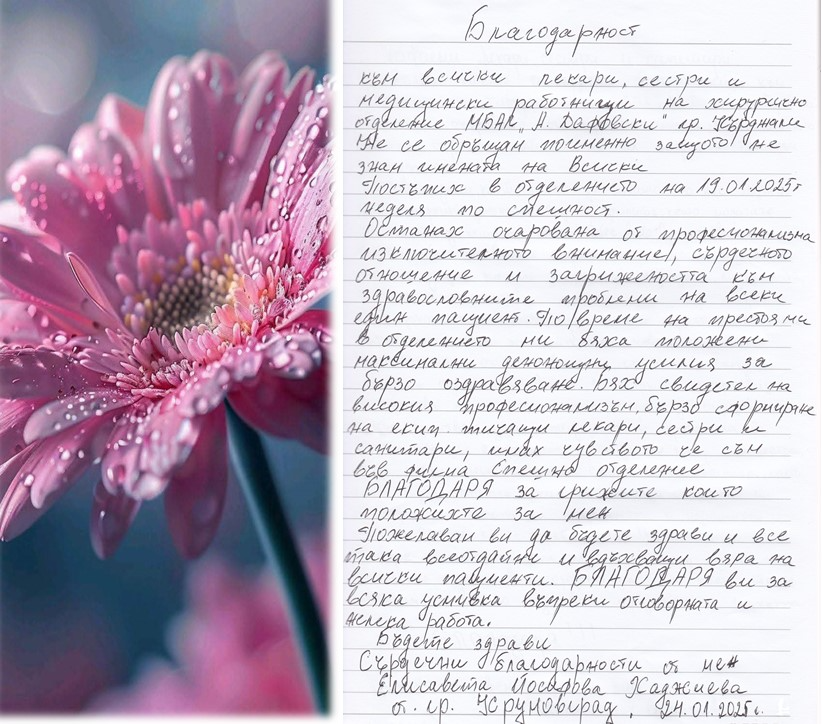 Благодарност
към всички лекари, сестри и
медицински работници на хирургично
отделение МБАЛ "А. Дафовски" гр. Кърджали
Не се обръщам поименно защото не
знам имената на Всички
Постъпих в отделението на 19.01.2025г
неделя по спешност.
Останах очарована от професионализма
изключителното внимание, сърдечното
отношение и загрижеността към
здравословните проблеми на всеки
един пациент. По време на престоя ми
в отделението ми бяха положени
максимални денонощни усилия за
бързо оздравяване. Бях свидетел на
високия професионализъм, бързо сформиране
на екип тичащи лекари, сестри и
санитари, имах чувството че съм
във филма Спешно отделение
БЛАГОДАРЯ за грижите които
положихте за мен
Пожелавам ви да бъдете здрави и все
така всеотдайни и вдъхващи вяра на
всички пациенти. БЛАГОДАРЯ ви за
всяка усмивка въпреки отговорната и
жлека работа.
Бъдете здрави
Сърдечни благодарности от мен
Елисавета Йосифова Хаджиева
от гр. Крумовград, 24.01.2025г.